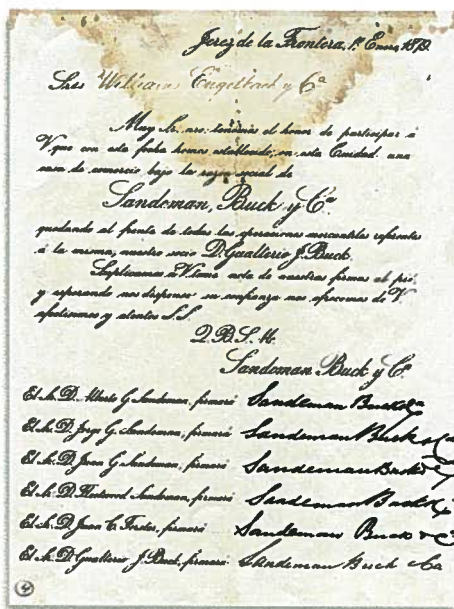 Jerez de la Frontera, 1º Enero 1879.
Sres William Engelbach y Cª
Muy Sr. nro: tenemos el honor de participar á
V. que con esta fecha hemos establecido, en esta Ciudad una
casa de comercio bajo la razon social de
Sandeman, Buck y Cª
quedando al frente de todas las operaciones mercantiles referentes
á la misma, nuestro socio D. Gualterio J. Buck.
Suplicamos á V. tome nota de nuestras firmas al pié
y esperando nos dispense su confianza nos ofrecemos de V.
afectisimos y atentos S.S.
Q.B.S.M.
Sandeman Buck y Cª
El Sr. D. Alberto G. Sandeman, firmará Sandeman Buck y Ca
El Sr. D. Jorge G. Sandeman, firmará Sandeman Buck y Ca
El Sr. D. Juan G. Sandeman, firmará Sandeman Buck y Ca
El Sr. D. Fleetwood Sandeman, firmará Sandeman Buck y Ca
El Sr. D. Juan C. Forster, firmará Sandeman Buck y Ca
El Sr. D. Gualterio J. Buck, firmará Sandeman Buck y Ca
4